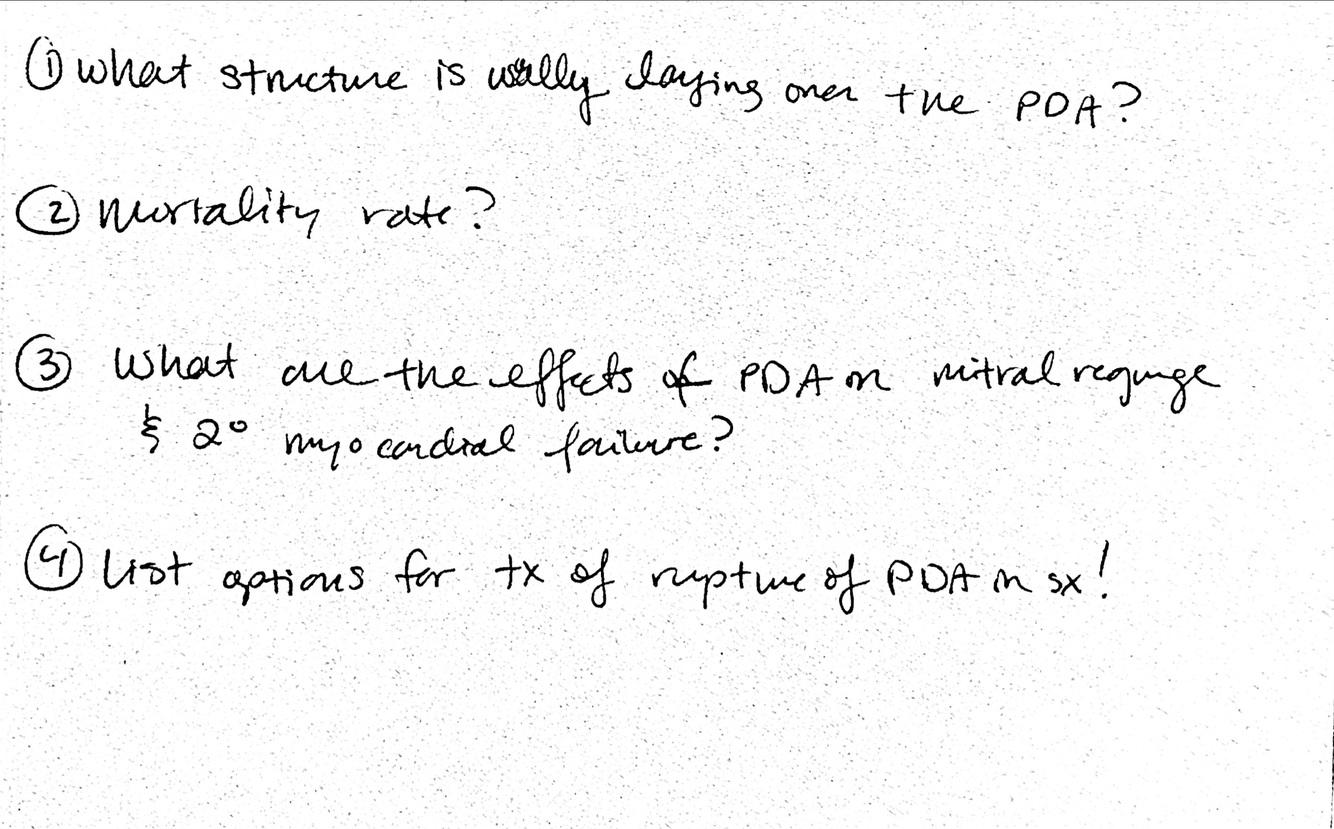 ① what structure is usually laying over the PDA?
② Mortality rate?
③ What are the effects of PDA on mitral regurge
& 2° myocardial failure?
④ List options for tx of rupture of PDA in sx!